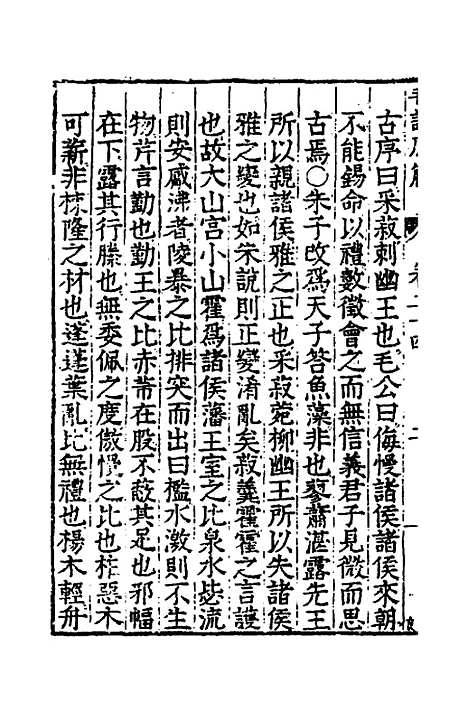 古序曰采菽刺幽王也毛公曰侮慢諸侯諸侯來朝
不能錫命以禮數徵會之而無信義君子見微而思
古焉○朱子改爲天子答魚藻非也蓼蕭湛露先王
所以親諸侯雅之正也采菽菀柳幽王所以失諸侯
雅之變也如朱說則正變淆亂矣菽藿霍之言護
也故大山宫小山霍爲諸侯藩王室之比泉水㳀流
則安感沸者陵暴之比排突而出曰檻水激則不生
物芹言勤也勤王之比赤芾在股不蔽其足也邪幅
在下露其行縢也無委佩之度傲慢之比也柞惡木
可薪非棟隆之材也蓬蓬葉亂比無禮也楊木輕舟